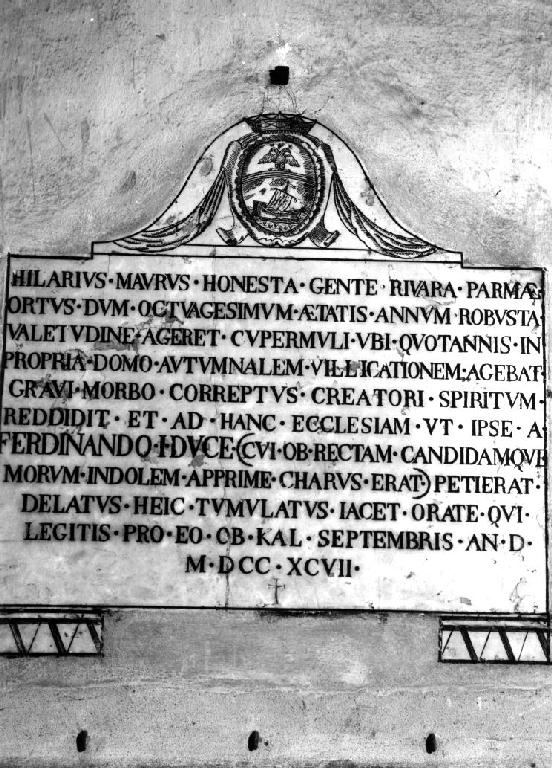 HILARIVS·MAVRVS·HONESTA·GENTE·RIVARA·PARMÆ·
ORTVS·DVM·OCTVAGESIMVM·ÆTATIS·ANNVM·ROBVSTA
VALETVDINE·AGERET·CVPERMVLI·VBI·QVOTANNIS·IN
PROPRIA·DOMO·AVTVMNALEM·VILLICATIONEM·AGEBAT·
GRAVI·MORBO·CORREPTVS·CREATORI·SPIRITVM·
REDDIDIT·ET·AD·HANC·ECCLESIAM·VT·IPSE·A·
FERDINANDO·I·DVCE·(CVI·OB·RECTAM·CANDIDAMQVE
MORVM·INDOLEM·APPRIME·CHARVS·ERAT·)PETIERAT·
DELATVS·HEIC·TVMVLATVS·IACET·ORATE·QVI·
LEGITIS·PRO·EO·OB·KAL·SEPTEMBRIS·AN·D·
M·DCC·XCVII·